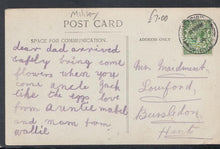 Military
£7.00
POST CARD
SPACE FOR COMMUNICATION.
ADDRESS ONLY.
dear dad arrived
safely bring some
flowers when you
come uncle Jack
like the eggs love
from Auntie mabel
and mam from
wallie
Mr Maidment,
Lowford,
Bursledon
Hants